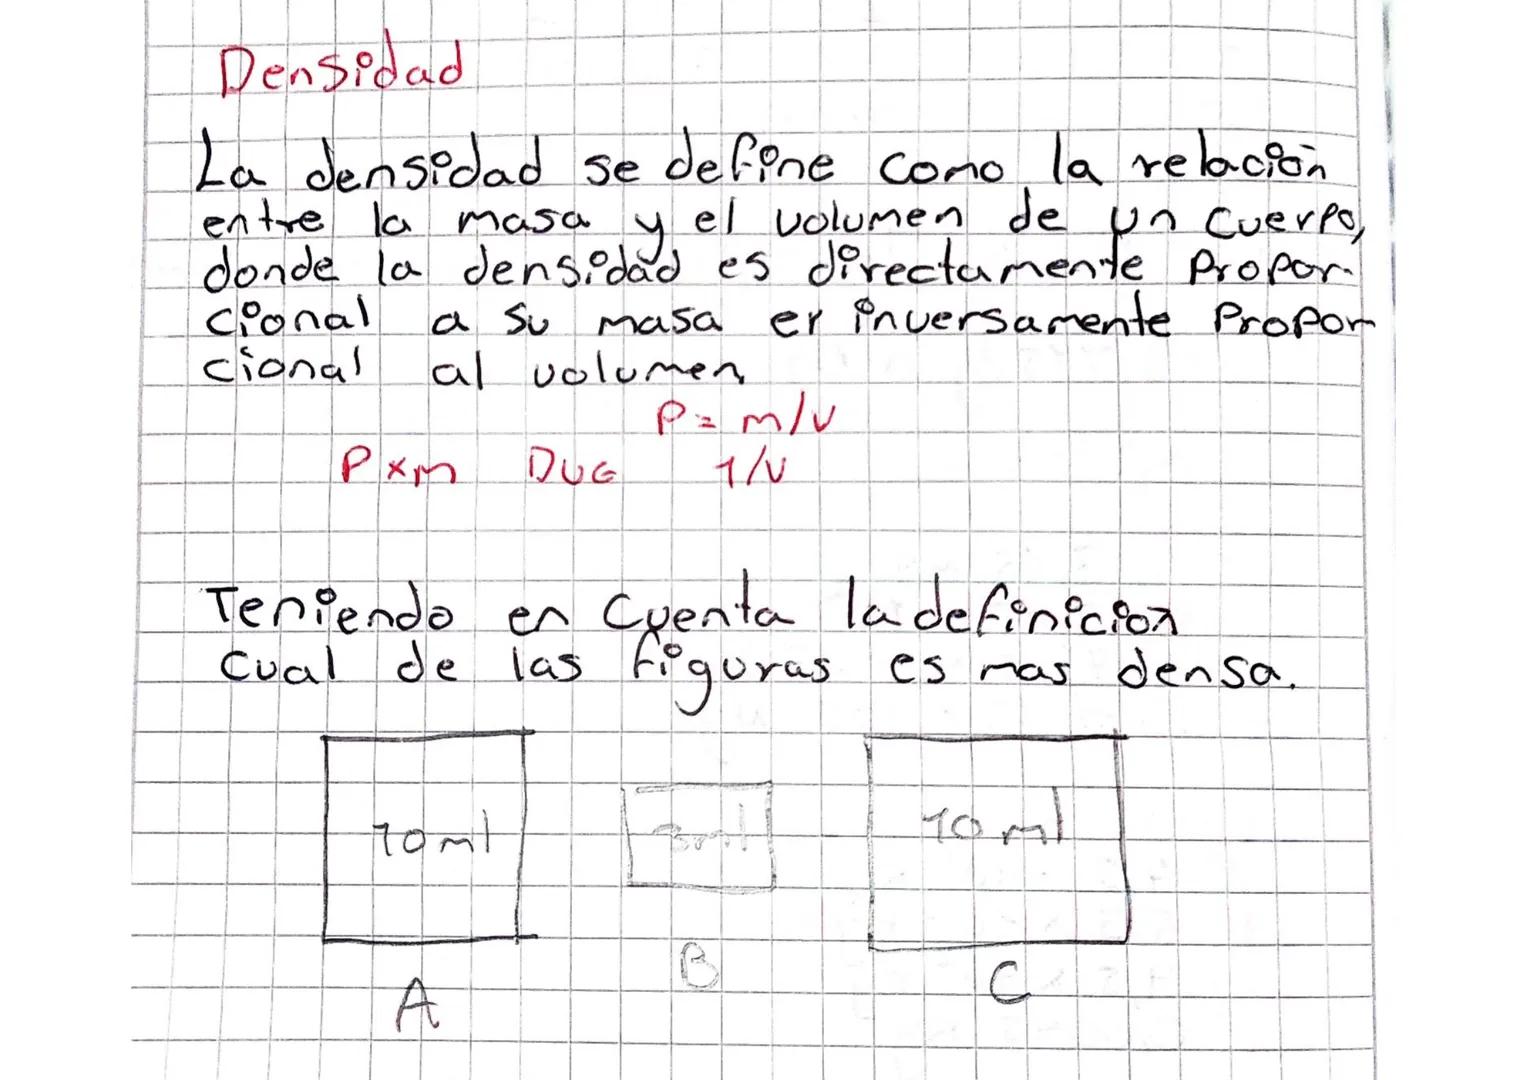 Densidad
La densidad se define como la relación
entre la masa y el volumen de un cuerpo,
donde la densidad es directamente Propor-
cional a su masa er inversamente Propor
cional al volumen
P = m/v
P x m DUG 1/v
Teniendo en cuenta la definicion
Cual de las figuras es mas densa.
10ml 3ml 10 ml
A B C